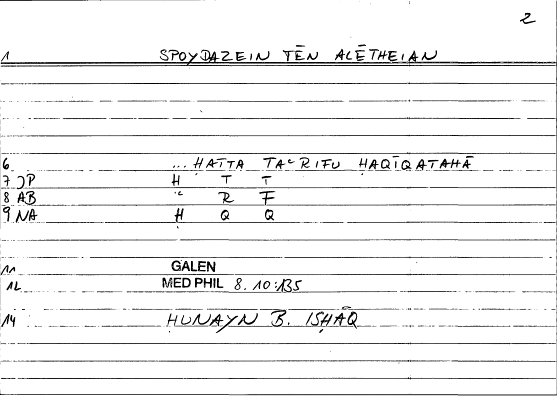 2
1 SPOYDAZEIN TĒN ALĒTHEIAN
6 ... ḤATTA TAʿRIFU ḤAQĪQATAHĀ
7 JP Ḥ T T
8 AB ʿ R F
9 NA Ḥ Q Q
11 GALEN
12 MED PHIL 8. 10:135
14 ḤUNAYN B. ISḤĀQ